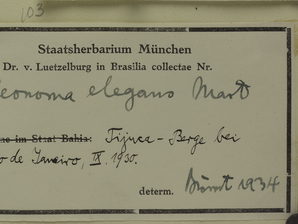 103
Staatsherbarium München
Dr. v. Luetzelburg in Brasilia collectae Nr.
eonoma elegans Mart
ne im Staat Bahia: Tijuca-Berge bei
o de Janeiro, IX. 1930.
determ. Burret 1934